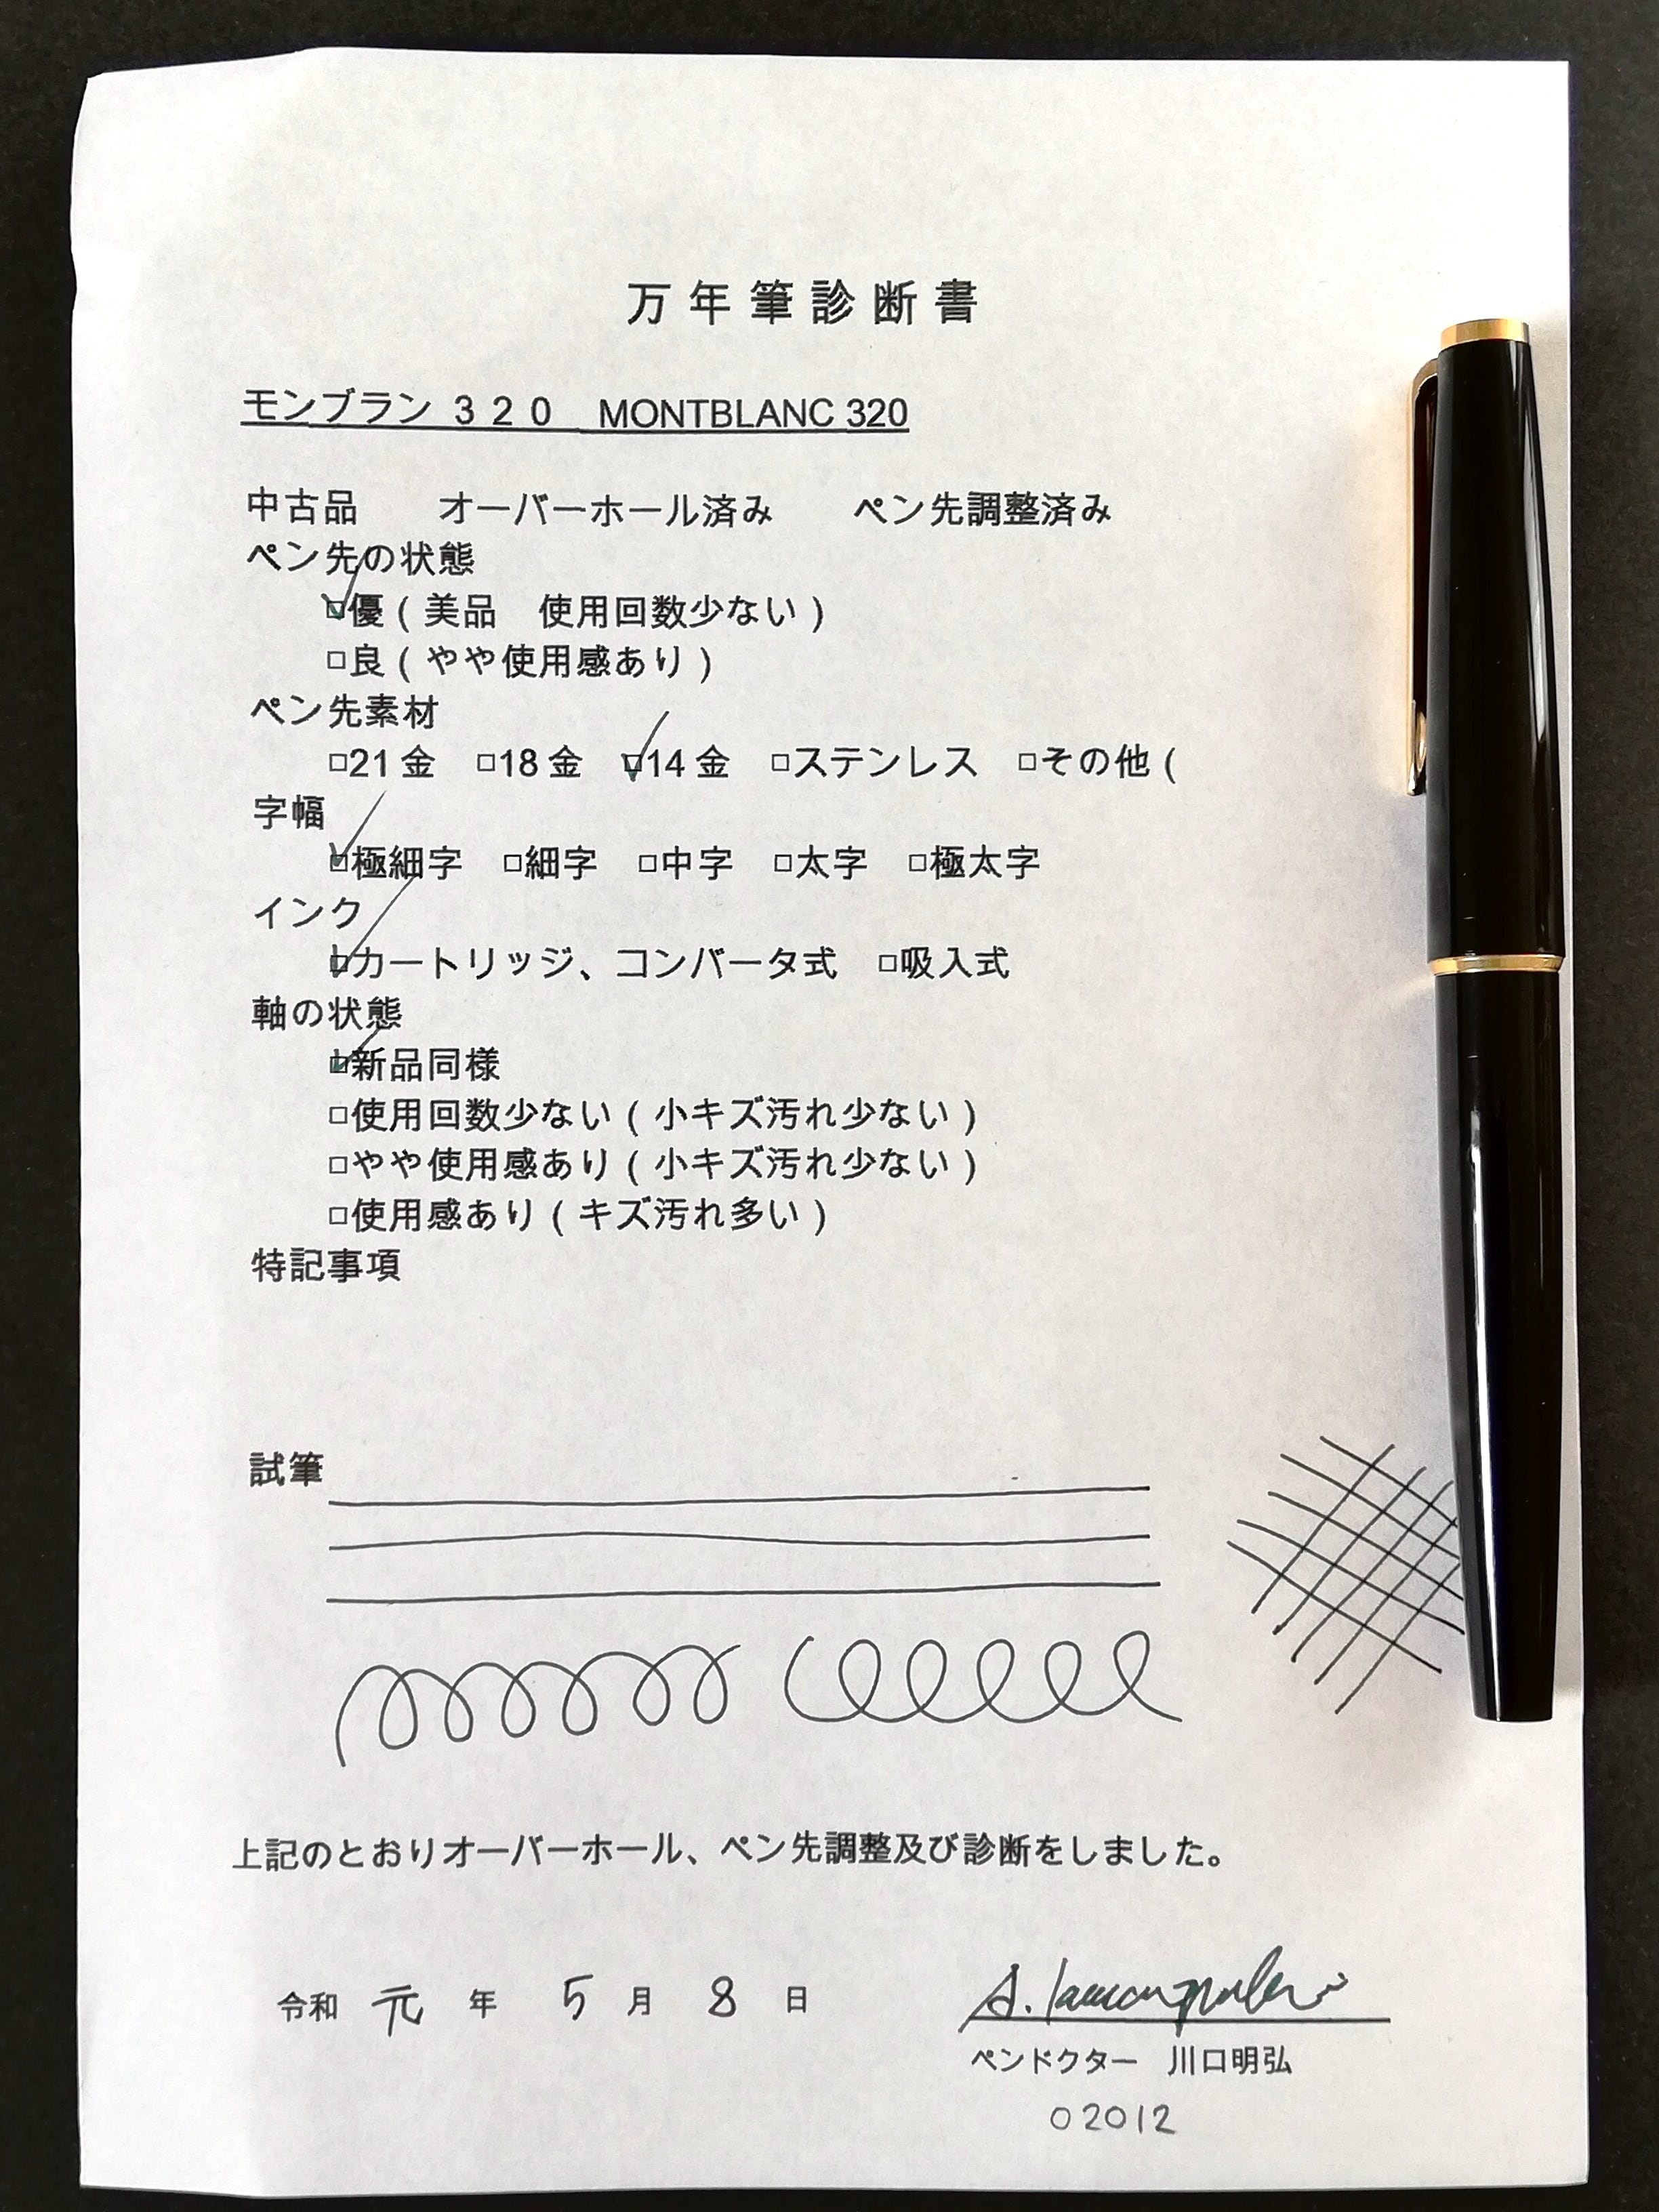 万年筆診断書
モンブラン 320 MONTBLANC 320
中古品 オーバーホール済み ペン先調整済み
ペン先の状態
☑優(美品 使用回数少ない)
□良(やや使用感あり)
ペン先素材
□21金 □18金 ☑14金 □ステンレス □その他(
字幅
☑極細字 □細字 □中字 □太字 □極太字
インク
☑カートリッジ、コンバータ式 □吸入式
軸の状態
☑新品同様
□使用回数少ない(小キズ汚れ少ない)
□やや使用感あり(小キズ汚れ少ない)
□使用感あり(キズ汚れ多い)
特記事項
試筆
上記のとおりオーバーホール、ペン先調整及び診断をしました。
令和 元 年 5 月 8 日
ペンドクター 川口明弘
02012